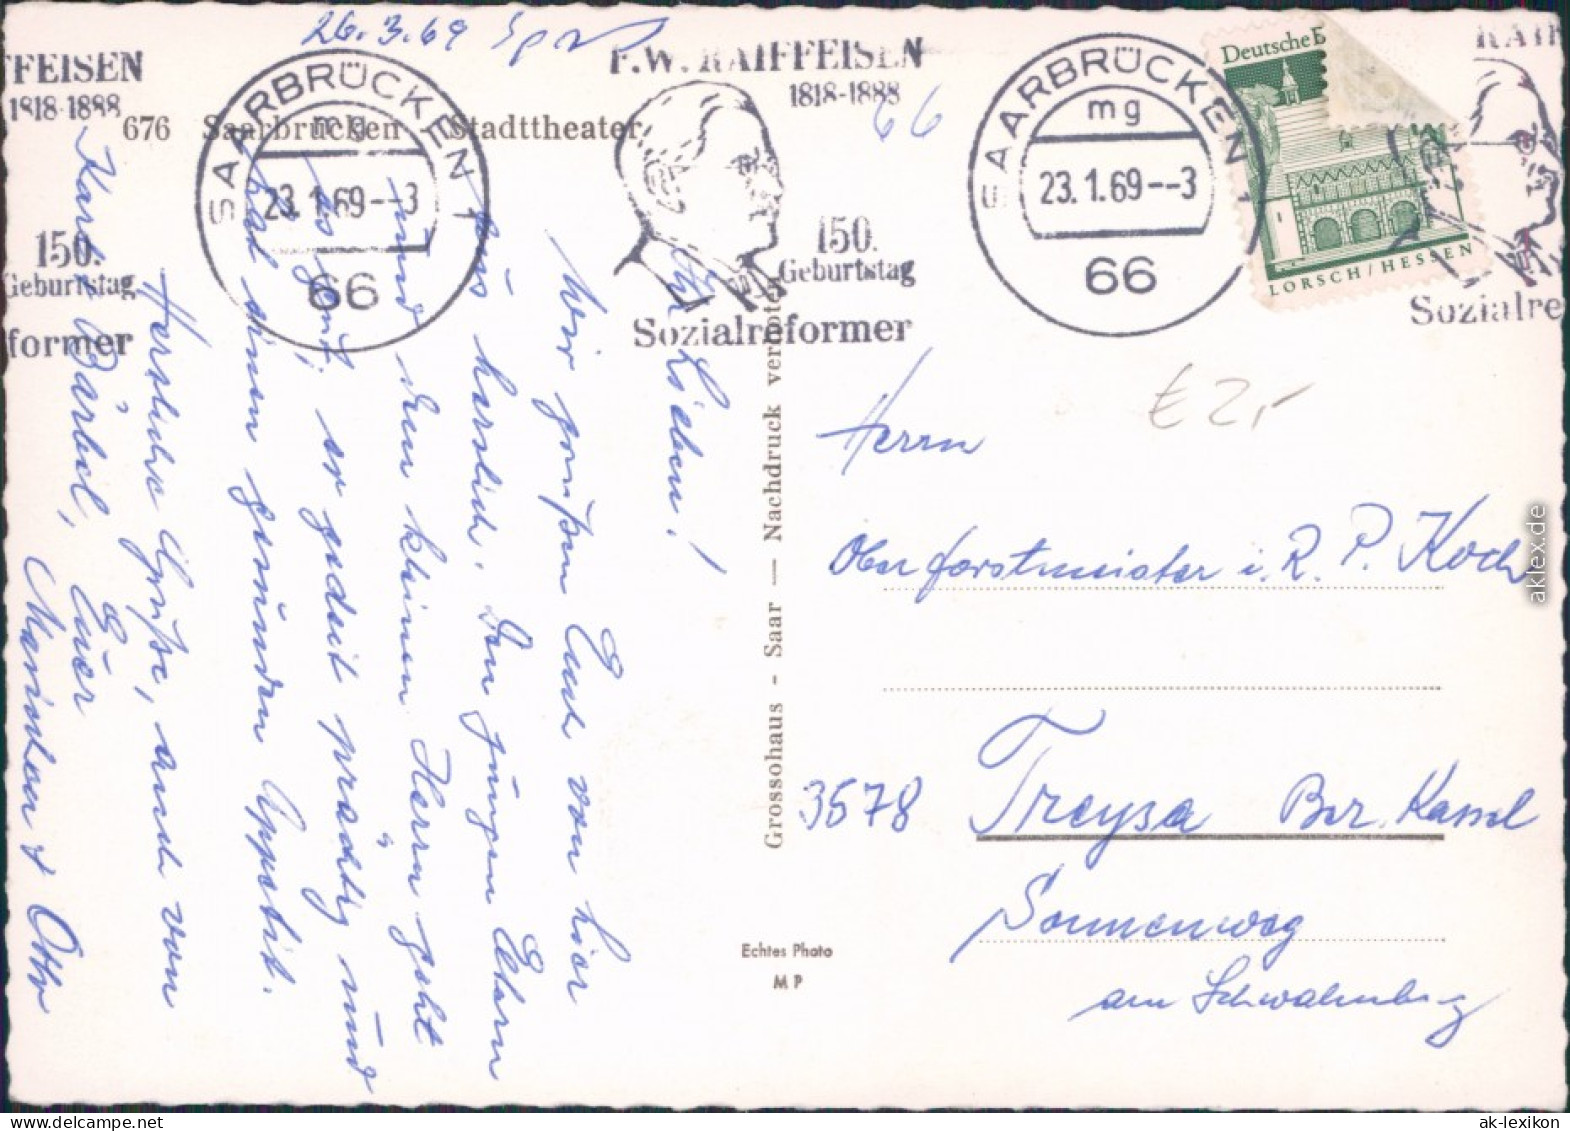 26.3.69
FFEISEN
1818-1888
150.
Geburtstag
former
SAARBRÜCKEN 1
mg
23.1.69--3
66
F.W. RAIFFEISEN
1818-1888
150.
Geburtstag
Sozialreformer
66
SAARBRÜCKEN 1
mg
23.1.69--3
66
RAIF
Sozialre
Deutsche B
LORSCH / HESSEN
676 Saarbrücken Stadttheater
Ihr Lieben!
Wir grüßen Euch von hier
aus herzlich. Den jungen Eltern
und dem kleinen Herrn geht
es gut, er gedeit prächtig und
hat einen gesunden Appetit.
Herzliche Grüße, auch von
Karl u. Bärbel, Euer
Marichen & Otto
Grossohaus - Saar — Nachdruck verboten
Echtes Photo
M P
€ 2,-
Herrn
Oberforstmeister i. R. P. Koch
3578 Treysa Bez. Kassel
Sonnenweg
am Schwalmberg
aklex.de
ak-lexikon